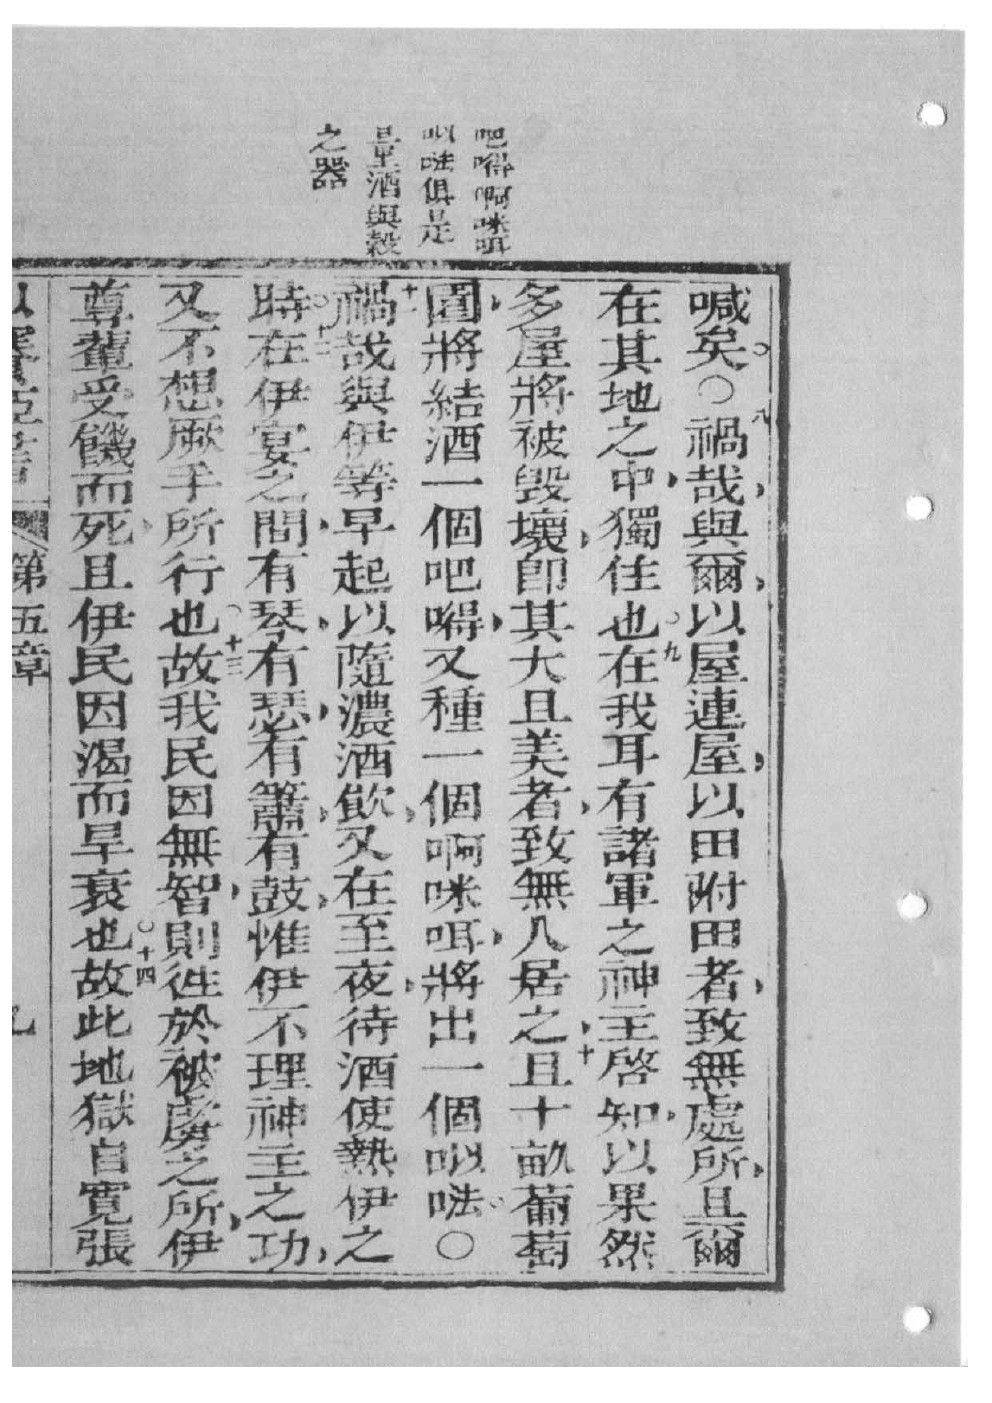 吧㗂啊咪咡
以㖫俱是
量酒與穀
之器
喊矣○八禍哉與爾以屋連屋以田附田者致無處所且爾
在其地之中獨住也九在我耳有諸軍之神主啓知以果然
多屋將被毀壞卽其大且美者致無人居之十且十畝葡萄
園將結酒一個吧㗂又種一個啊咪咡將出一個㕥㖫○
十一禍哉與伊等早起以隨濃酒飲又在至夜待酒使熱伊之
時十二在伊宴之間有琴有瑟有簫有鼓惟伊不理神主之功
又不想厥手所行也十三故我民因無智則徃於被虜之所伊
尊輩受饑而死且伊民因渴而旱衰也十四故此地獄自寬張
第五章